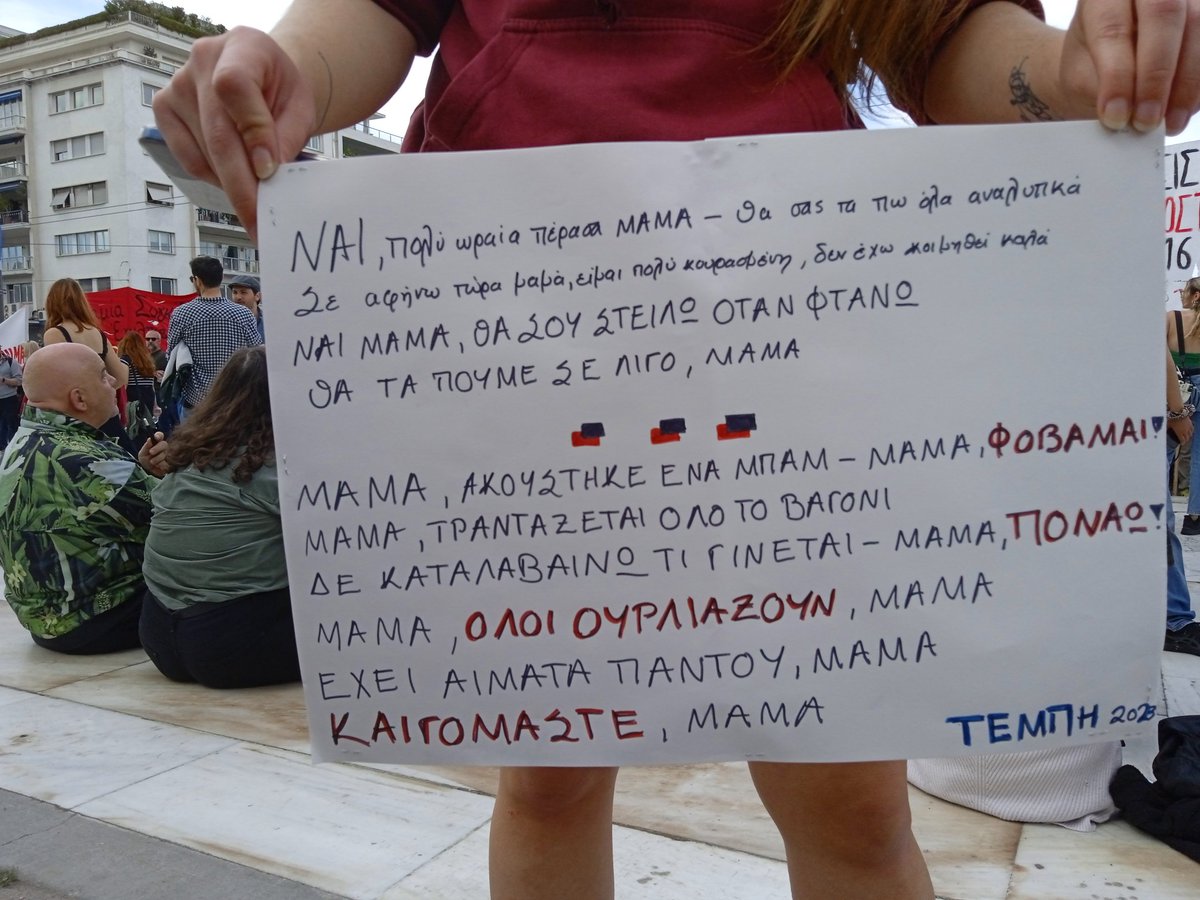 ΝΑΙ, πολύ ωραία πέρασα ΜΑΜΑ – θα σας τα πω όλα αναλυτικά
Σε αφήνω τώρα μαμά, είμαι πολύ κουρασμένη, δεν έχω κοιμηθεί καλά
ΝΑΙ ΜΑΜΑ, ΘΑ ΣΟΥ ΣΤΕΙΛΩ ΟΤΑΝ ΦΤΑΝΩ
ΘΑ ΤΑ ΠΟΥΜΕ ΣΕ ΛΙΓΟ, ΜΑΜΑ
ΜΑΜΑ, ΑΚΟΥΣΤΗΚΕ ΕΝΑ ΜΠΑΜ – ΜΑΜΑ, ΦΟΒΑΜΑΙ!
ΜΑΜΑ, ΤΡΑΝΤΑΖΕΤΑΙ ΟΛΟ ΤΟ ΒΑΓΟΝΙ
ΔΕ ΚΑΤΑΛΑΒΑΙΝΩ ΤΙ ΓΙΝΕΤΑΙ – ΜΑΜΑ, ΠΟΝΑΩ!
ΜΑΜΑ, ΟΛΟΙ ΟΥΡΛΙΑΖΟΥΝ, ΜΑΜΑ
ΕΧΕΙ ΑΙΜΑΤΑ ΠΑΝΤΟΥ, ΜΑΜΑ
ΚΑΙΓΟΜΑΣΤΕ, ΜΑΜΑ
ΤΕΜΠΗ 2023